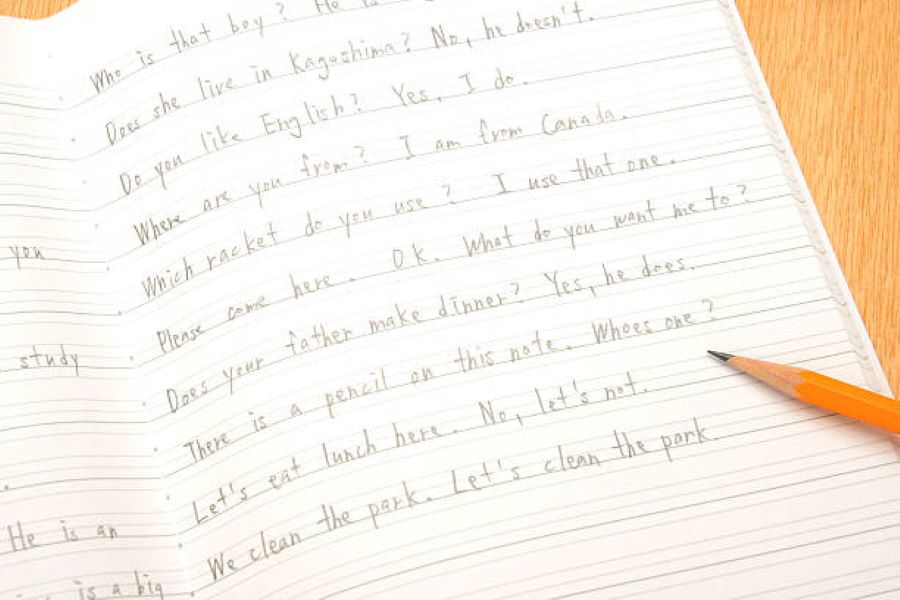 you
study
.
He is an
is a big
Who is that boy? He is
Does she live in Kagoshima? No, he doesn't.
Do you like English? Yes, I do.
Where are you from? I am from Canada.
Which racket do you use? I use that one.
Please come here. OK. What do you want me to?
Does your father make dinner? Yes, he does.
There is a pencil on this note. Whoes one?
Let's eat lunch here. No, let's not.
We clean the park. Let's clean the park.